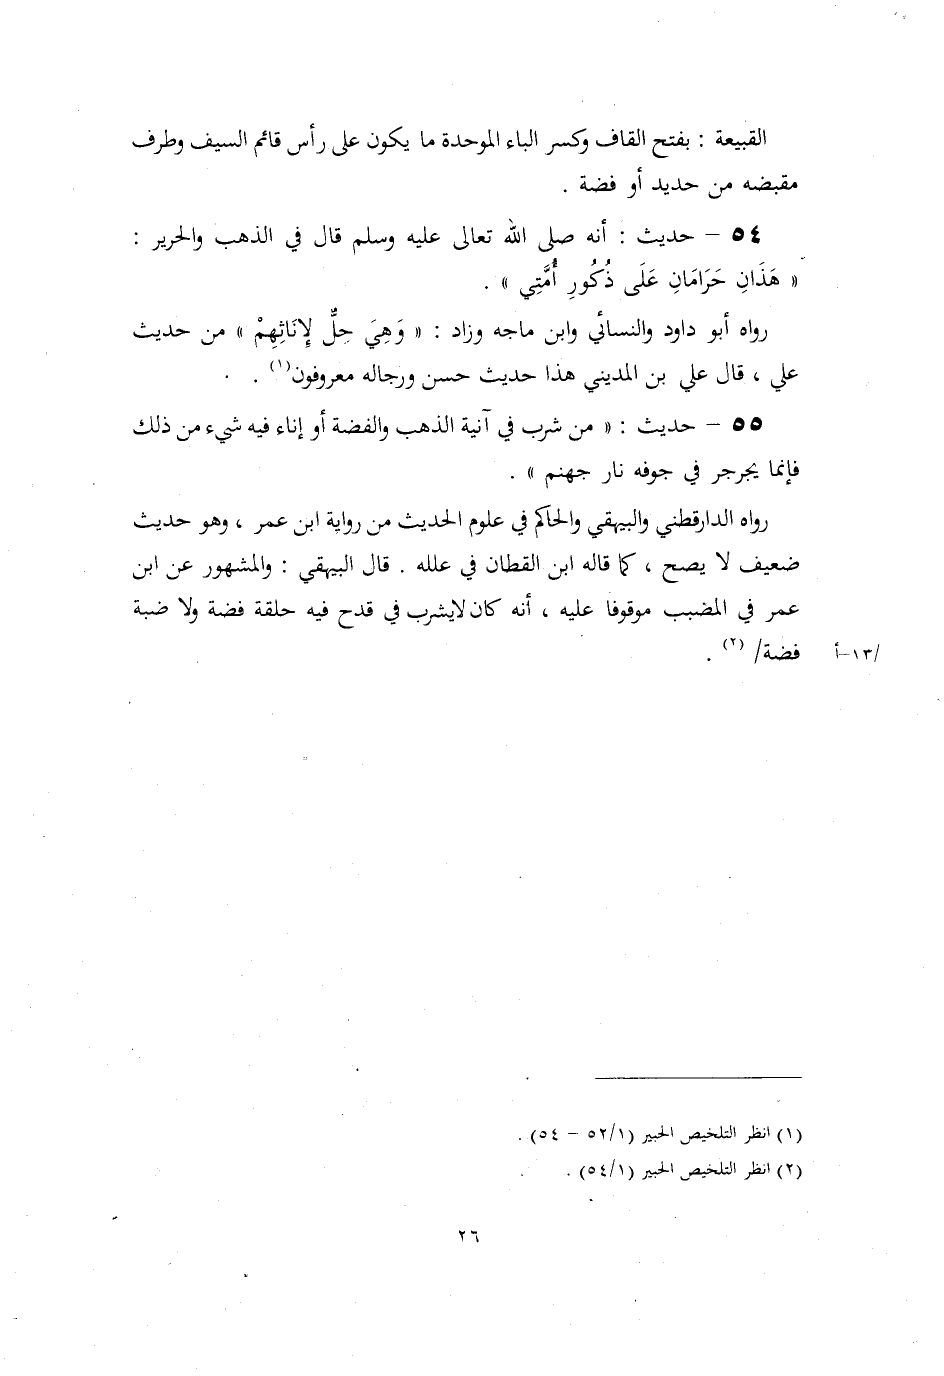 القبيعة : بفتح القاف وكسر الباء الموحدة ما يكون على رأس قائم السيف وطرف
مقبضه من حديد أو فضة .
٥٤ – حديث : أنه صلى الله تعالى عليه وسلم قال في الذهب والحرير :
« هَذَانِ حَرَامَانِ عَلَى ذُكُورِ أُمَّتِي » .
رواه أبو داود والنسائي وابن ماجه وزاد : « وَهِيَ حِلٌّ لِإِنَاثِهِمْ » من حديث
علي ، قال علي بن المديني هذا حديث حسن ورجاله معروفون(١) .
٥٥ – حديث : « من شرب في آنية الذهب والفضة أو إناء فيه شيء من ذلك
فإنما يجرجر في جوفه نار جهنم » .
رواه الدارقطني والبيهقي والحاكم في علوم الحديث من رواية ابن عمر ، وهو حديث
ضعيف لا يصح ، كما قاله ابن القطان في علله . قال البيهقي : والمشهور عن ابن
عمر في المضبب موقوفا عليه ، أنه كان لايشرب في قدح فيه حلقة فضة ولا ضبة
/١٣–أ فضة/ (٢) .
(١) انظر التلخيص الحبير (٥٢/١ – ٥٤) .
(٢) انظر التلخيص الحبير (٥٤/١) .
٢٦